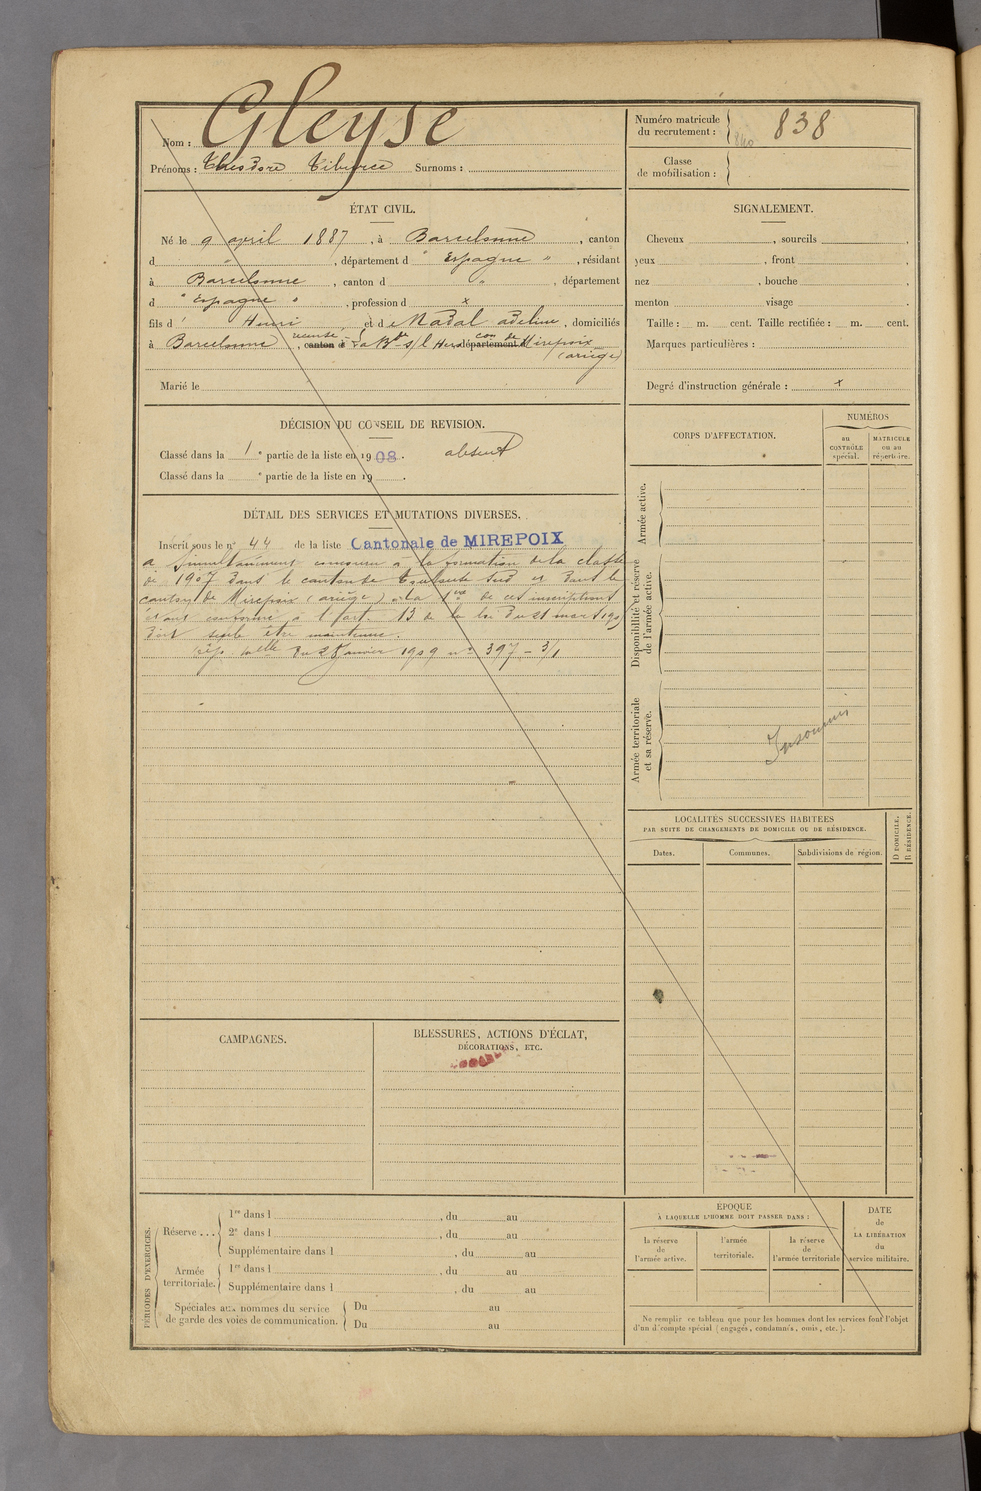 Nom : Gleyse
Prénoms : Théodore Tiburce Surnoms :
Numéro matricule du recrutement : 838
Classe de mobilisation :
ÉTAT CIVIL.
Né le 9 avril 1887, à Barcelonne, canton
d " , département d " Espagne " , résidant
à Barcelonne , canton d " , département
d " Espagne " , profession d x
fils d' Henri et de Nadal adeline, domiciliés
à Barcelonne, recensé canton d La B de s/l Hers département d con de Mirepoix
(ariège)
Marié le
SIGNALEMENT.
Cheveux , sourcils ,
yeux , front ,
nez , bouche ,
menton visage .
Taille : m. cent. Taille rectifiée : m. cent.
Marques particulières :
Degré d'instruction générale : x
DÉCISION DU CONSEIL DE REVISION.
Classé dans la 1 e partie de la liste en 1908. absent
Classé dans la e partie de la liste en 19 .
CORPS D'AFFECTATION.
NUMÉROS
au CONTRÔLE spécial.
MATRICULE ou au répertoire.
Armée active.
Disponibilité et réserve de l'armée active.
Armée territoriale et sa réserve.
Insoumis
DÉTAIL DES SERVICES ET MUTATIONS DIVERSES.
Inscrit sous le n° 44 de la liste Cantonale de MIREPOIX
a simultanément concouru à la formation de la classe
de 1907 dans le canton de Toulouse Sud et dans le
canton de Mirepoix (ariège) la 1ère de ces inscriptions
étant conforme à l'art. 13 de la loi du 21 mars 1905
doit seule être maintenue.
Dép. elle du 28 janvier 1909 n° 397 - 3/1
LOCALITÉS SUCCESSIVES HABITÉES
PAR SUITE DE CHANGEMENTS DE DOMICILE OU DE RÉSIDENCE.
Dates. Communes. Subdivisions de région.
D DOMICILE.
R RÉSIDENCE.
CAMPAGNES.
BLESSURES, ACTIONS D'ÉCLAT,
DÉCORATIONS, ETC.
PÉRIODES D'EXERCICES.
Réserve ...
1re dans l , du au
2e dans l , du au
Supplémentaire dans l , du au
Armée territoriale.
1re dans l , du au
Supplémentaire dans l , du au
Spéciales aux hommes du service
de garde des voies de communication.
Du au
Du au
ÉPOQUE
À LAQUELLE L'HOMME DOIT PASSER DANS :
la réserve de l'armée active.
l'armée territoriale.
la réserve de l'armée territoriale
DATE de LA LIBÉRATION du service militaire.
Ne remplir ce tableau que pour les hommes dont les services font l'objet
d'un d'compte spécial (engagés, condamnés, omis, etc.).